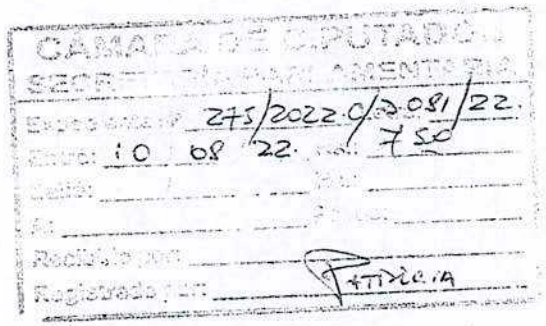 CÁMARA DE DIPUTADOS
SECRETARÍA PARLAMENTARIA
Expediente Nº 275/2022.0/D.081/22.
Entró: 10 08 22. 7 50
Salió: /
A:
Recibido por:
Registrado por: PATRICIA